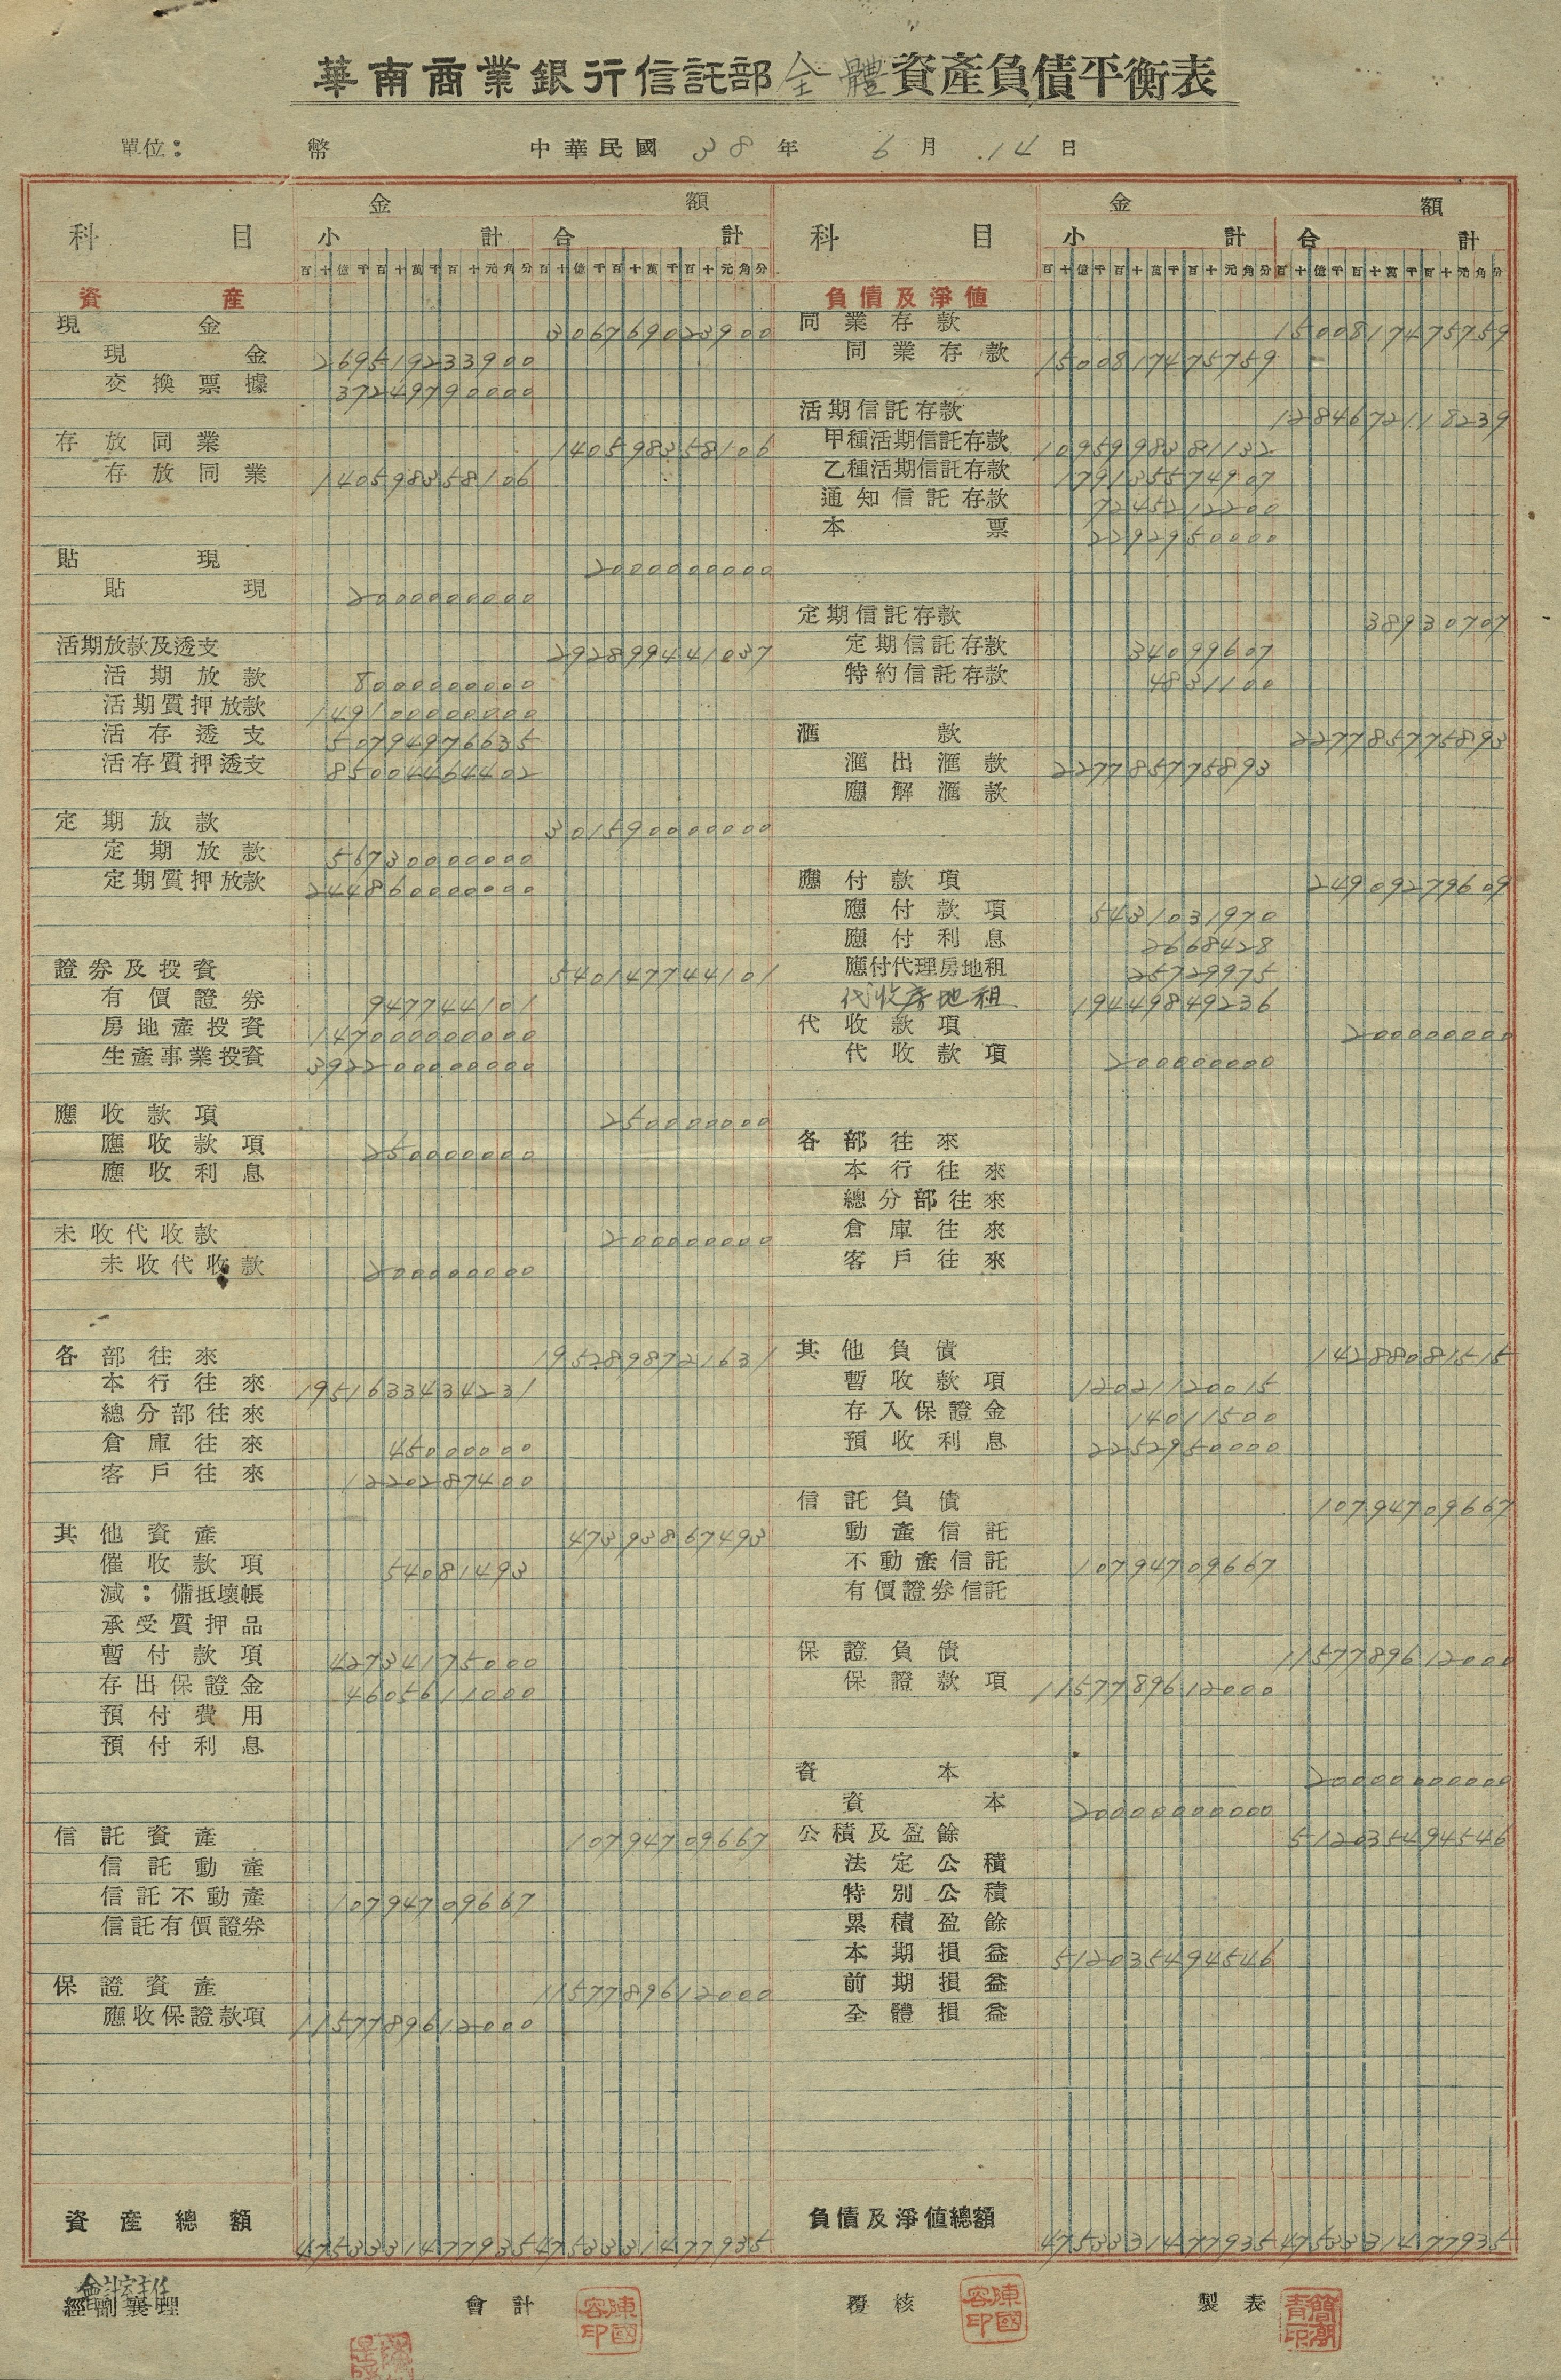 華南商業銀行信託部全體資產負債平衡表
單位: 幣 中華民國 38 年 6 月 14 日
科 目 金 額 科 目 金 額
小 計 合 計 小 計 合 計
百十億千百十萬千百十元角分 百十億千百十萬千百十元角分 百十億千百十萬千百十元角分 百十億千百十萬千百十元角分
資 產
現 金 306769023900
現 金 269519233900
交換票據 37249790000
存放同業 140598358106
存放同業 140598358106
貼 現 2000000000
貼 現 2000000000
活期放款及透支 292899441037
活期放款 8000000000
活期質押放款 149100000000
活存透支 50794976635
活存質押透支 85004464402
定期放款 301590000000
定期放款 56730000000
定期質押放款 244860000000
證券及投資 540147744101
有價證券 947744101
房地產投資 147000000000
生產事業投資 392200000000
應收款項 250000000
應收款項 250000000
應收利息
未收代收款 200000000
未收代收款 200000000
各部往來 1952898721631
本行往來 1951633434231
總分部往來
倉庫往來 45000000
客戶往來 1220287400
其他資產 47393867493
催收款項 54081493
減:備抵壞帳
承受質押品
暫付款項 42734175000
存出保證金 4605611000
預付費用
預付利息
信託資產 10794709667
信託動產
信託不動產 10794709667
信託有價證券
保證資產 1157789612000
應收保證款項 1157789612000
資產總額 4753331477935 4753331477935
負債及淨值
同業存款 1500817475759
同業存款 1500817475759
活期信託存款 1284672118239
甲種活期信託存款 1095998381132
乙種活期信託存款 179135574907
通知信託存款 7245212200
本 票 2292950000
定期信託存款 38930707
定期信託存款 34099607
特約信託存款 4831100
滙 款 227785775893
滙出滙款 227785775893
應解滙款
應付款項 24909279609
應付款項 5431031970
應付利息 2668428
應付代理房地租 25729975
代收房地租 19449849236
代收款項 200000000
代收款項 200000000
各部往來
本行往來
總分部往來
倉庫往來
客戶往來
其他負債 14288081515
暫收款項 12021120015
存入保證金 14011500
預收利息 2252950000
信託負債 10794709667
動產信託
不動產信託 10794709667
有價證券信託
保證負債 1157789612000
保證款項 1157789612000
資 本 20000000000
資 本 20000000000
公積及盈餘 512035494546
法定公積
特別公積
累積盈餘
本期損益 512035494546
前期損益
全體損益
負債及淨值總額 4753331477935 4753331477935
會計室主任
經副襄理 會計 覆核 製表
陳國容印 陳國容印 簡潮青印